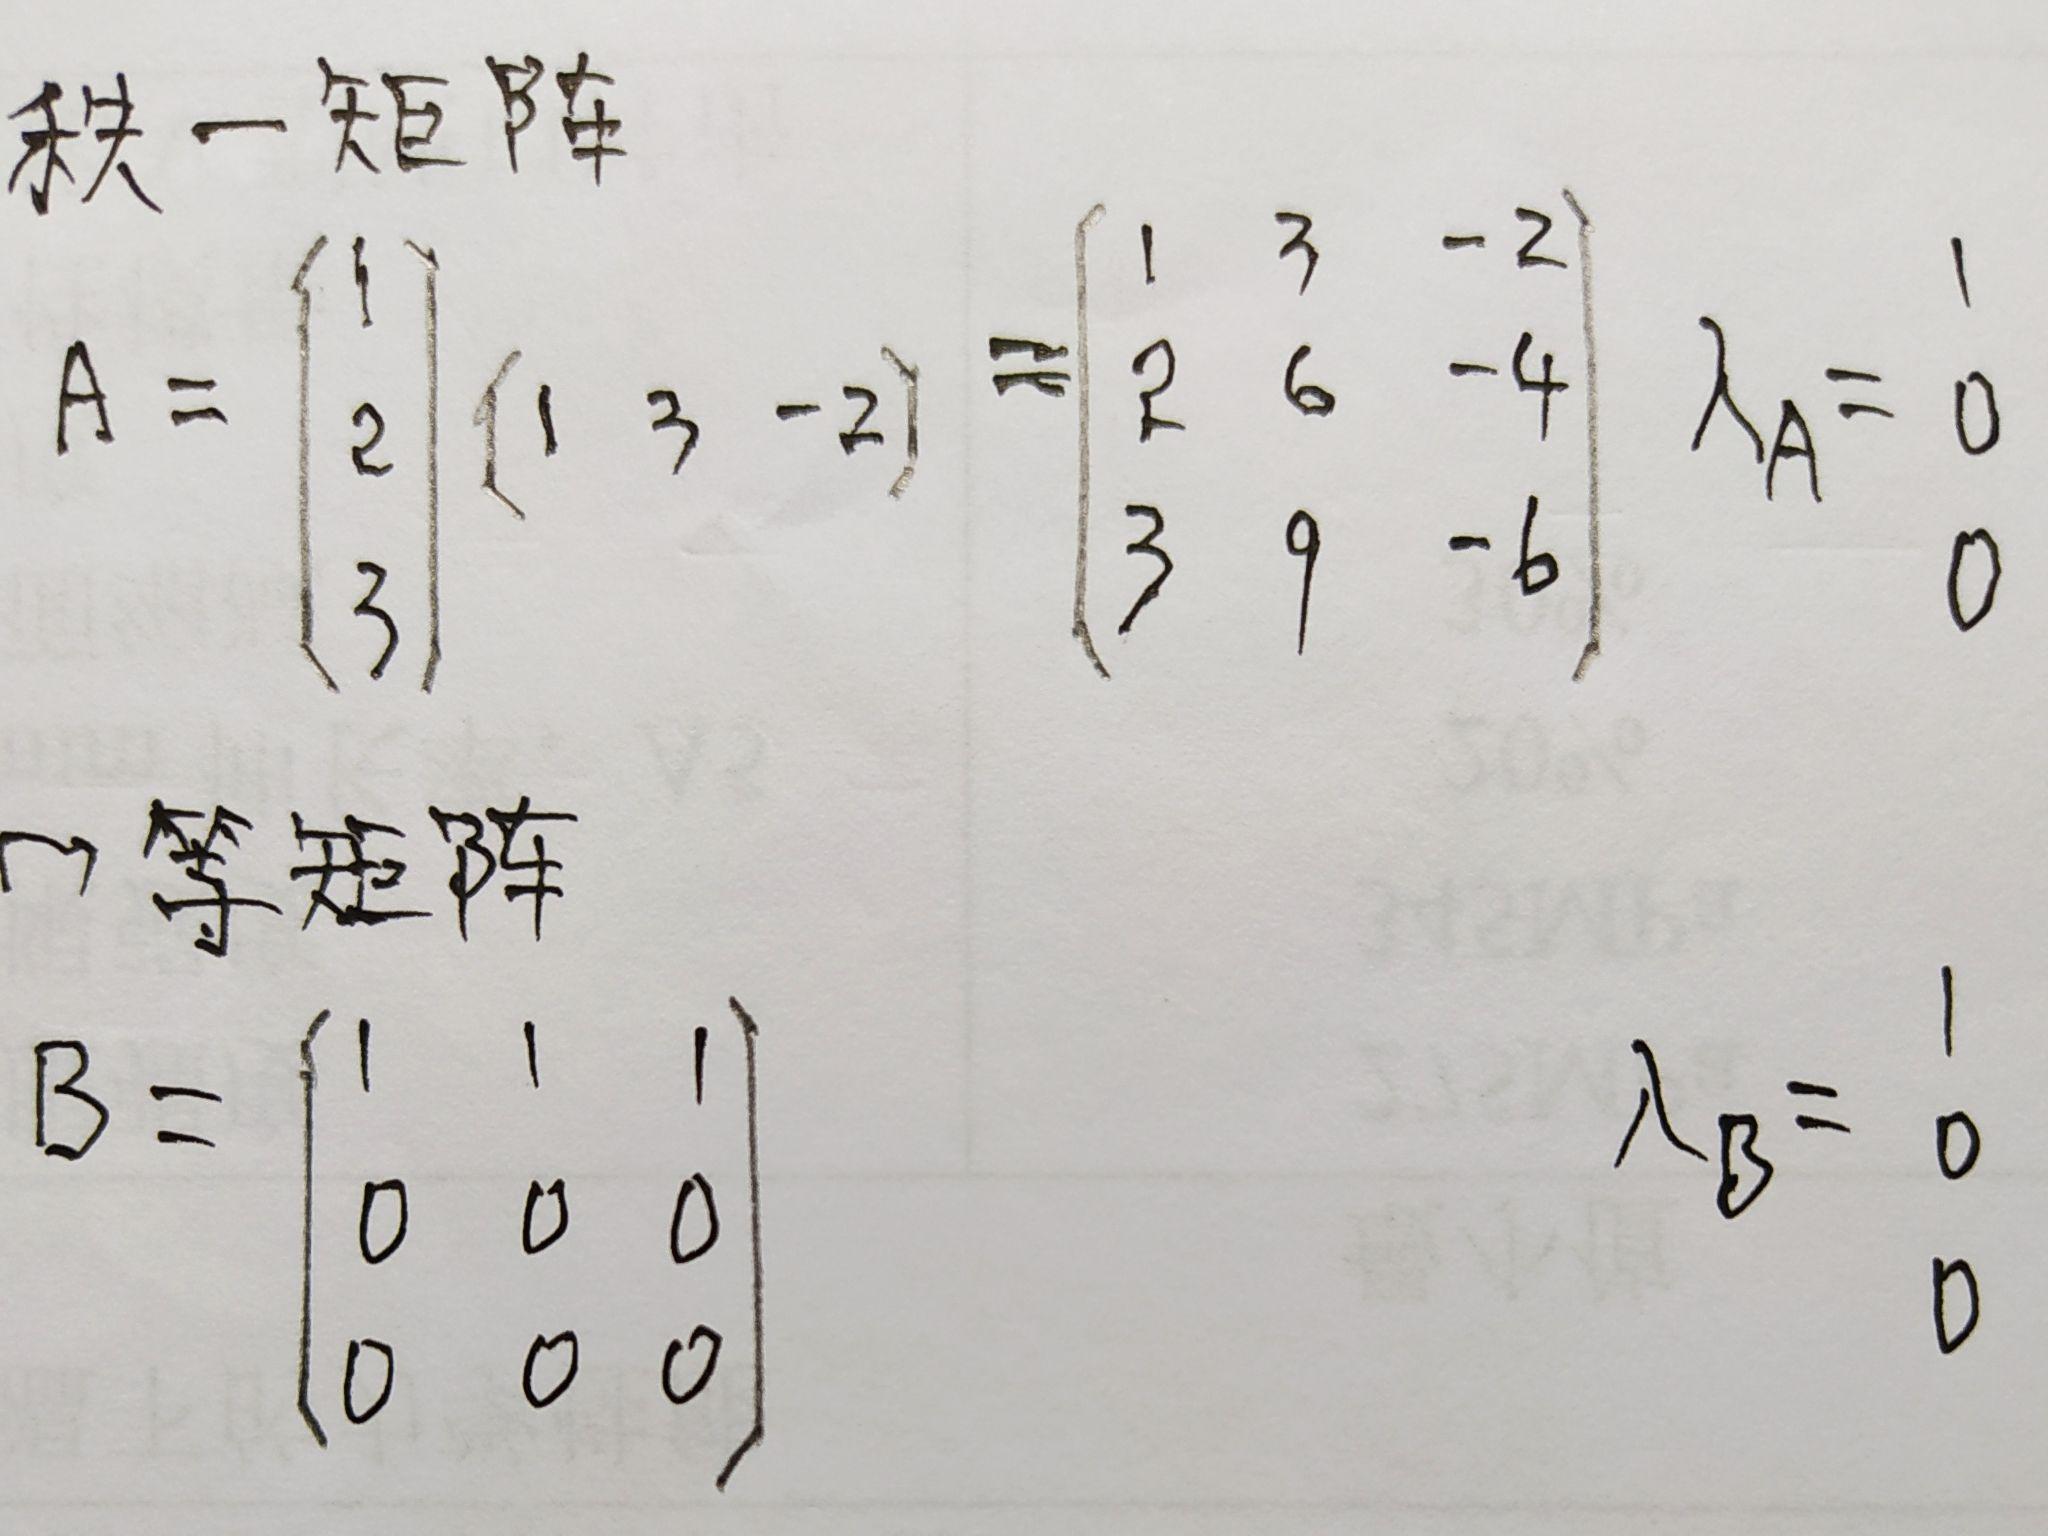 秩一矩阵
A = (1 2 3) (1 3 -2) = (1 3 -2 2 6 -4 3 9 -6) λA = 1 0 0
等矩阵
B = (1 1 1 0 0 0 0 0 0) λB = 1 0 0